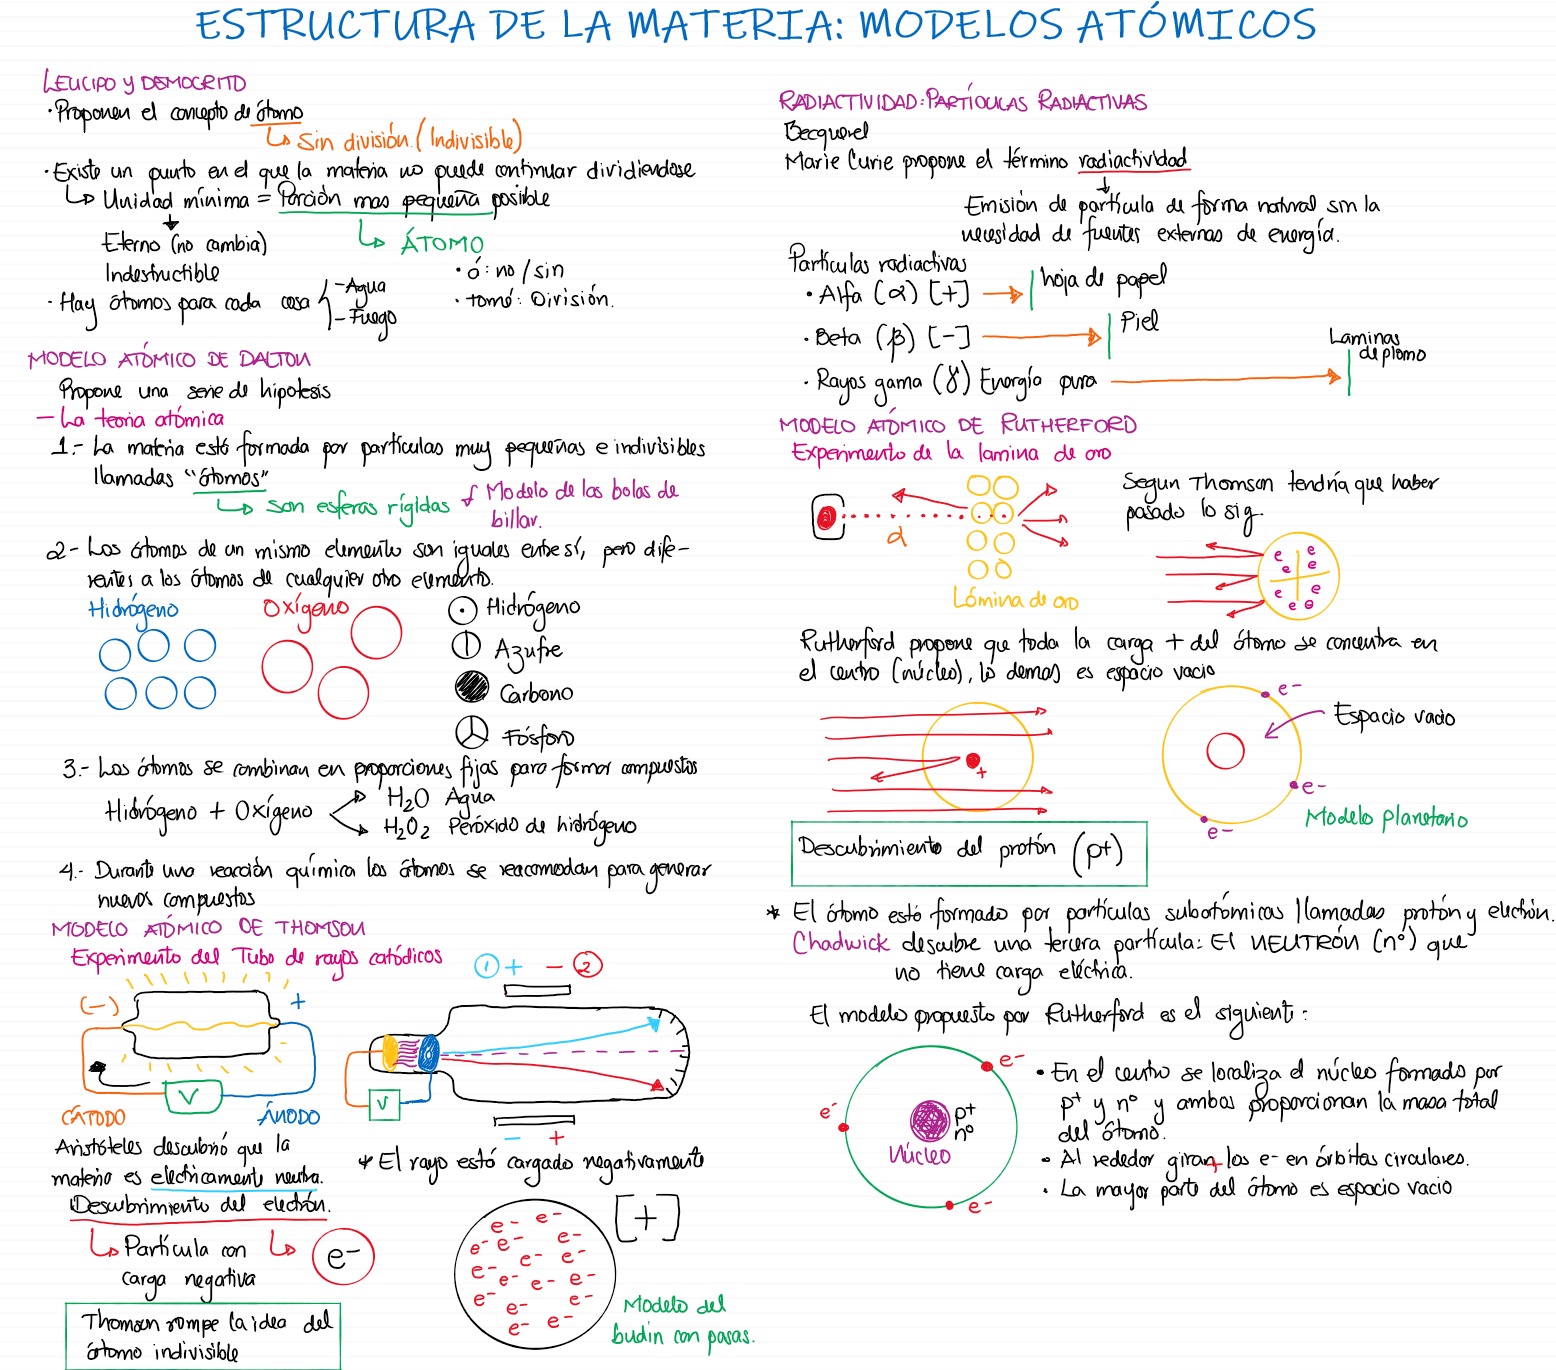 ESTRUCTURA DE LA MATERIA: MODELOS ATÓMICOS
LEUCIPO Y DEMOCRITO
· Proponen el concepto de átomo
↳ Sin división. (Indivisible)
· Existe un punto en el que la materia no puede continuar dividiendose
↳ Unidad mínima = Porción mas pequeña posible
Eterno (no cambia)
Indestructible
↳ ÁTOMO
· á: no / sin
· tomé: División.
· Hay átomos para cada cosa
- Agua
- Fuego
MODELO ATÓMICO DE DALTON
Propone una serie de hipotesis
- La teoria atómica
1.- La materia está formada por partículas muy pequeñas e indivisibles
llamadas "átomos"
↳ Son esferas rígidas
Modelo de las bolas de
billar.
2- Los átomos de un mismo elemento son iguales entre sí, pero dife-
rentes a los átomos de cualquier otro elemento.
Hidrógeno
Oxígeno
Hidrógeno
Azufre
Carbono
Fósforo
3.- Los átomos se combinan en proporciones fijas para formar compuestos
Hidrógeno + Oxígeno
H₂O Agua
H₂O₂ Peróxido de hidrógeno
4.- Durante una reacción química los átomos se reacomodan para generar
nuevos compuestos
MODELO ATÓMICO DE THOMSON
Experimento del Tubo de rayos catódicos
(-)
+
V
CÁTODO
ÁNODO
① + - ②
V
- +
Aristóteles descubrió que la
materia es electricamente neutra.
Descubrimiento del electrón.
↳ Partícula con
carga negativa
↳ e-
Thomson rompe la idea del
átomo indivisible
* El rayo está cargado negativamente
[+]
e- e-
e- e- e-
e- e-
e- e- e- e-
e- e- e-
e- e-
Modelo del
budin con pasas.
RADIACTIVIDAD: PARTÍCULAS RADIACTIVAS
Becquerel
Marie Curie propone el término radiactividad
Emisión de partícula de forma natural sin la
necesidad de fuentes externas de energía.
Partículas radiactivas
· Alfa (α) [+]
hoja de papel
· Beta (β) [-]
Piel
· Rayos gama (γ) Energía pura
Laminas
de plomo
MODELO ATÓMICO DE RUTHERFORD
Experimento de la lamina de oro
α
Lámina de oro
Segun Thomson tendría que haber
pasado lo sig.
e e
e e
e e
e e
Rutherford propone que toda la carga + del átomo se concentra en
el centro (núcleo), lo demas es espacio vacio
+
e-
Espacio vacio
e-
e-
Modelo planetario
Descubrimiento del protón (p+)
* El átomo está formado por partículas subatómicas llamadas protón y electrón.
Chadwick descubre una tercera partícula: El NEUTRÓN (n°) que
no tiene carga eléctrica.
El modelo propuesto por Rutherford es el siguiente:
e-
e-
p+
n°
Núcleo
e-
· En el centro se localiza el núcleo formado por
p+ y n° y ambos proporcionan la masa total
del átomo.
· Al rededor giran los e- en órbitas circulares.
· La mayor parte del átomo es espacio vacio